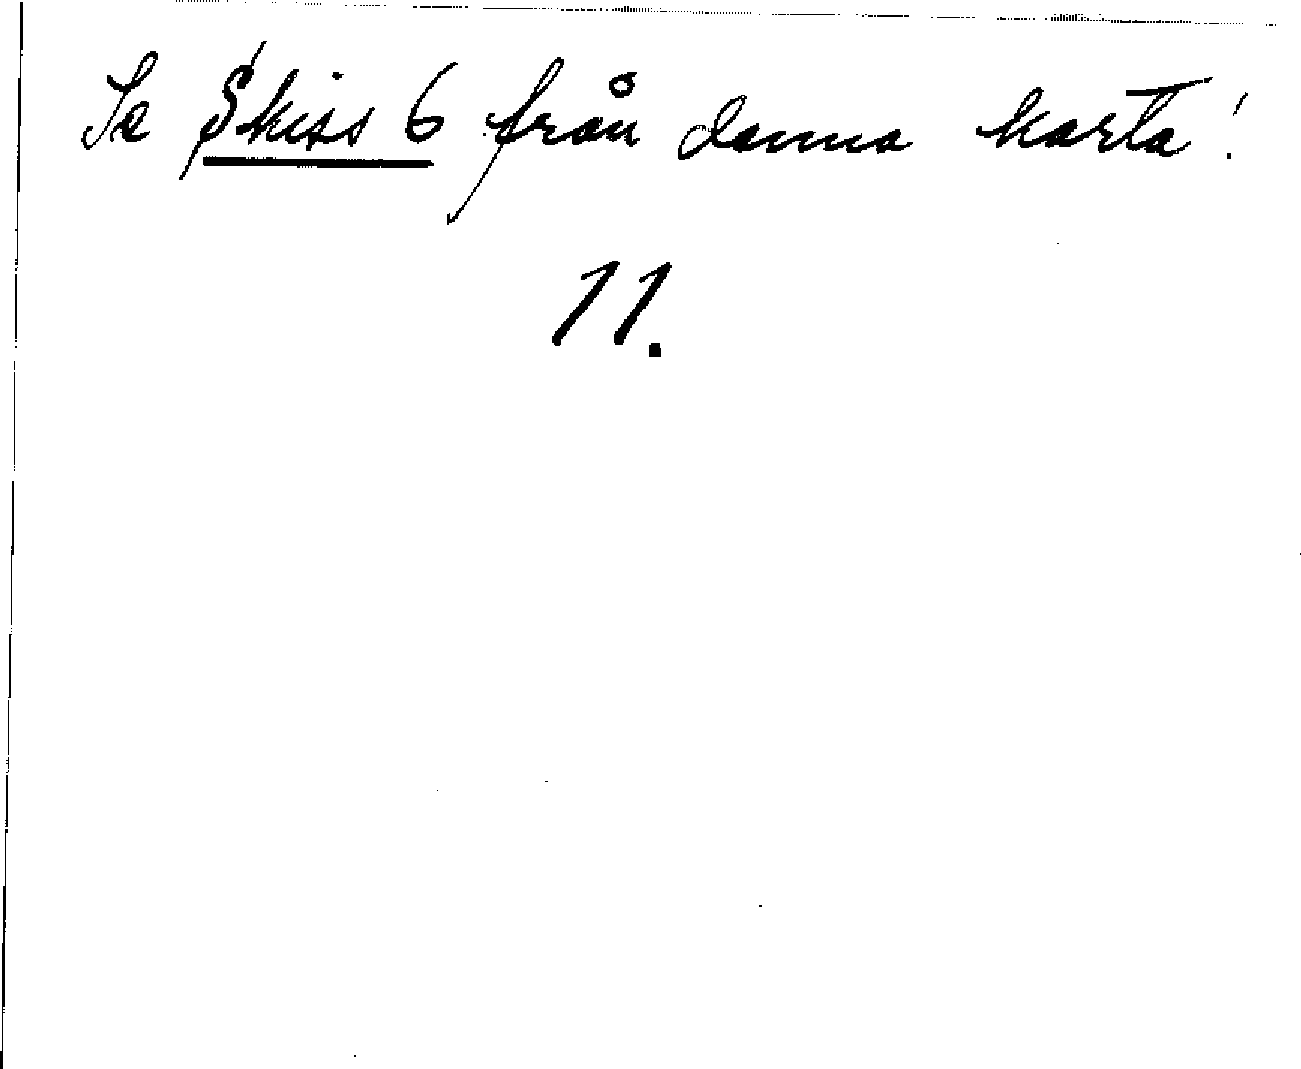 Se Skiss 6 från denna karta!
11.